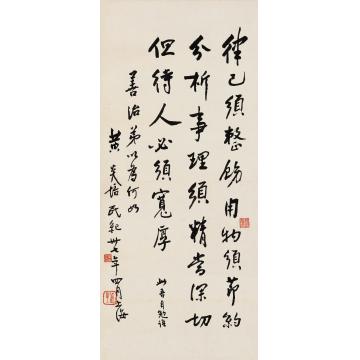 律己須整飭用物須節約
分析事理須精當深切
但待人必須寬厚
此吾自勉語
善治弟以為何如
黃炎培民紀卅七年四月上海